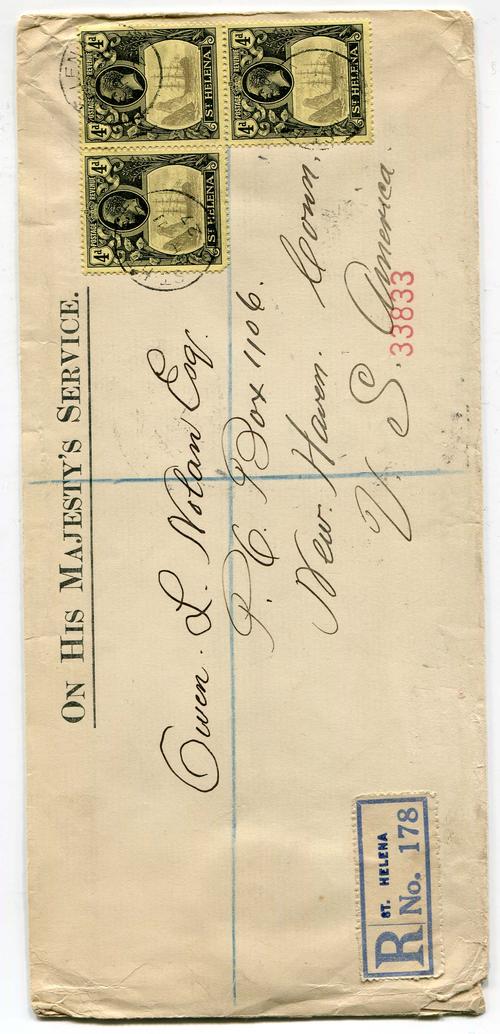 ON HIS MAJESTY'S SERVICE.
POSTAGE & REVENUE
4d
4d
ST HELENA
POSTAGE & REVENUE
4d
4d
ST HELENA
POSTAGE & REVENUE
4d
4d
ST HELENA
Owen. L. Nolan Esqr.
P. O. Box 1106.
New. Haven. Conn.
U. S. America.
33833
R
ST. HELENA
No. 178